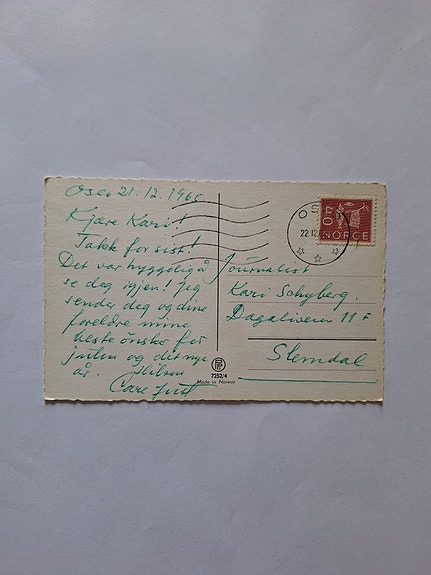 Oslo 21.12.1965
Kjære Kari!
Takk for sist!
Det var hyggelig å
se deg igjen! Jeg
sender deg og dine
foreldre mine
beste ønsker for
julen og det nye
år. Hilsen
Journalist
Kari Schyberg.
Dagaliveien 11 F
Slemdal
22.12
NORGE
7252/4
Made in Norway